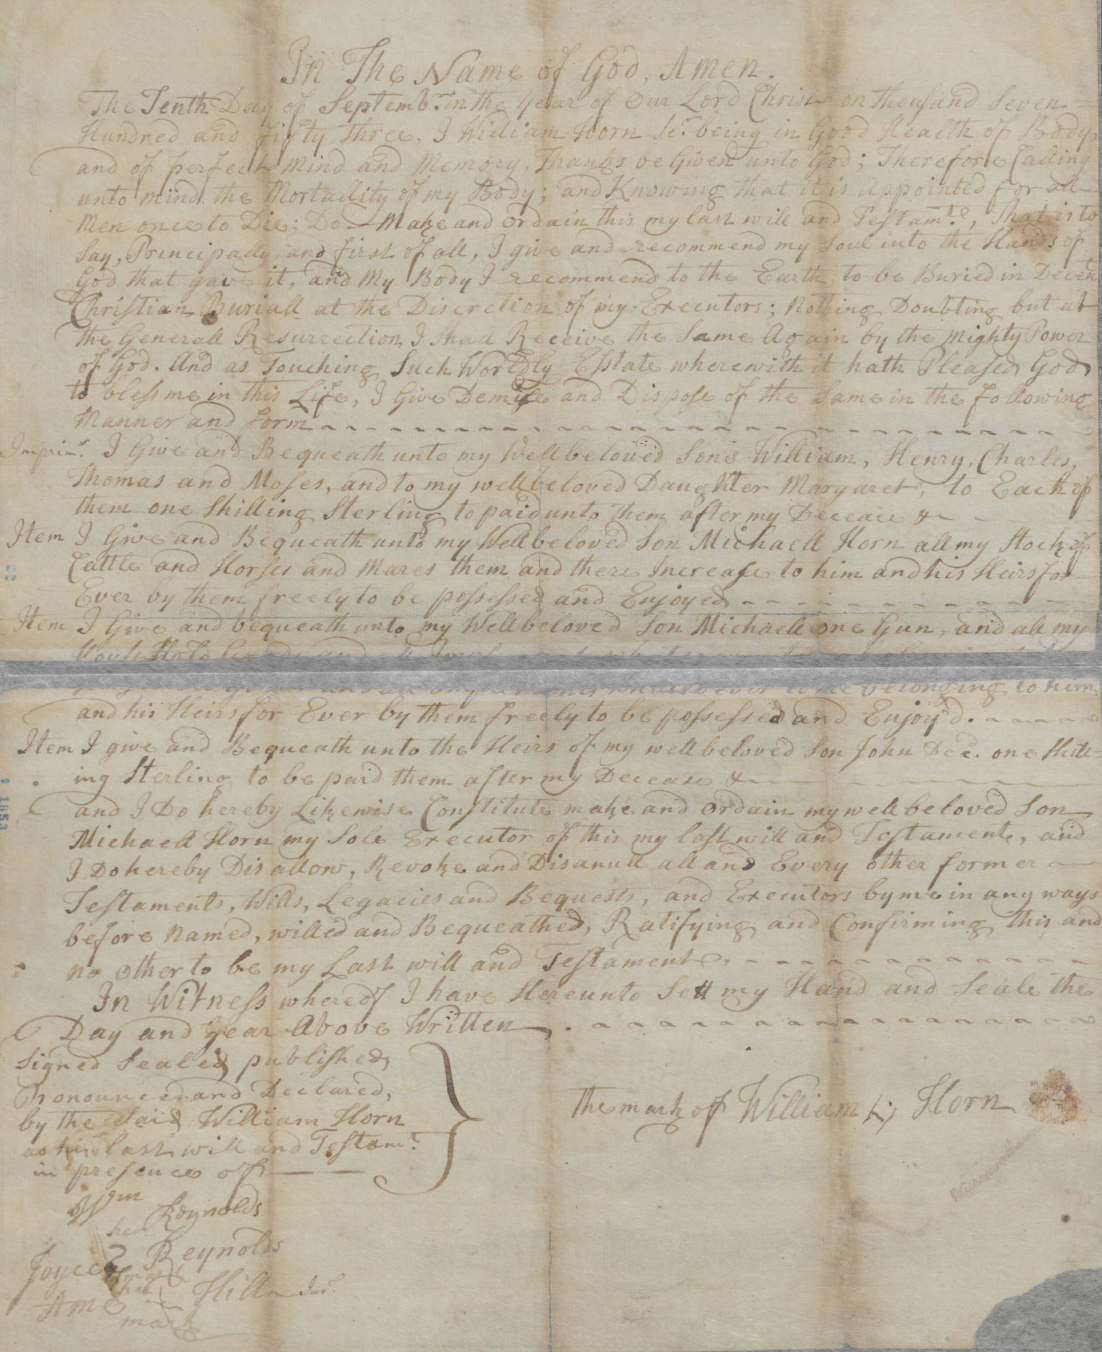 In The Name of God, Amen.
The Tenth Day of Septembr. in the Year of Our Lord Christ on thousand Seven
Hundred and fifty three. I William Horn Sr. being in Good Health of Body,
and of perfect Mind and Memory, Thanks be Given unto God; Therefore Calling
unto mind the Mortallity of my Body; and Knowing that it is Appointed for all
Men once to Die; Do Make and Ordain this my last will and Testamte., That is to
Say, Principaly and first of all, I give and recommend my Soul into the Hands of
God that gave it, and My Body I recommend to the Earth to be Buried in Decent
Christian Buriall at the Discretion of my Executors; Nothing Doubting but at
the Generall Resurrection I shall Receive the Same Again by the Mighty Power
of God. And as Touching Such Worldly Esstate wherewith it hath Pleased God
to bless me in this Life, I Give Demise and Dispose of the Same in the following
Manner and form
Imprimr. I Give and Bequeath unto my Wellbeloved Sons William, Henry, Charles,
Thomas and Moses, and to my wellbeloved Daughter Margaret, to Each of
them one Shilling Sterling to paid unto them after my Deceace &
Item I Give and Bequeath unto my Wellbeloved Son Michaell Horn all my Stock of
Cattle and Horses and Mares them and there Increase to him and his Heirs for
Ever by them freely to be possessed and Enjoyed
Item I Give and bequeath unto my Wellbeloved Son Michaell one Gun, and all my
belonging to him
and his Heirs for Ever by them freely to be possessed and Enjoy'd.
Item I give and Bequeath unto the Heirs of my wellbeloved Son John Dec. one Shill-
ing Sterling to be paid them after my Decease &
and I Do hereby Likewise Constitute make and Ordain my well beloved Son
Michaell Horn my Sole Executor of this my last will and Testament, and
I Do hereby Disallow, Revoke and Disanull all and Every other former
Testaments, Wills, Legacies and Bequests, and Executors by me in any ways
before Named, willed and Bequeathed, Ratifying and Confirming this and
no other to be my Last will and Testament
In Witness whereof I have Hereunto Sett my Hand and Seale the
Day and Year Above Written
Signed Sealed published
Pronounced and Declared,
by the Said William Horn
as his last will and Testamt.
in presence off
the mark of William Horn
Wm Reynolds
her
Joyce Reynolds
Hill
mark